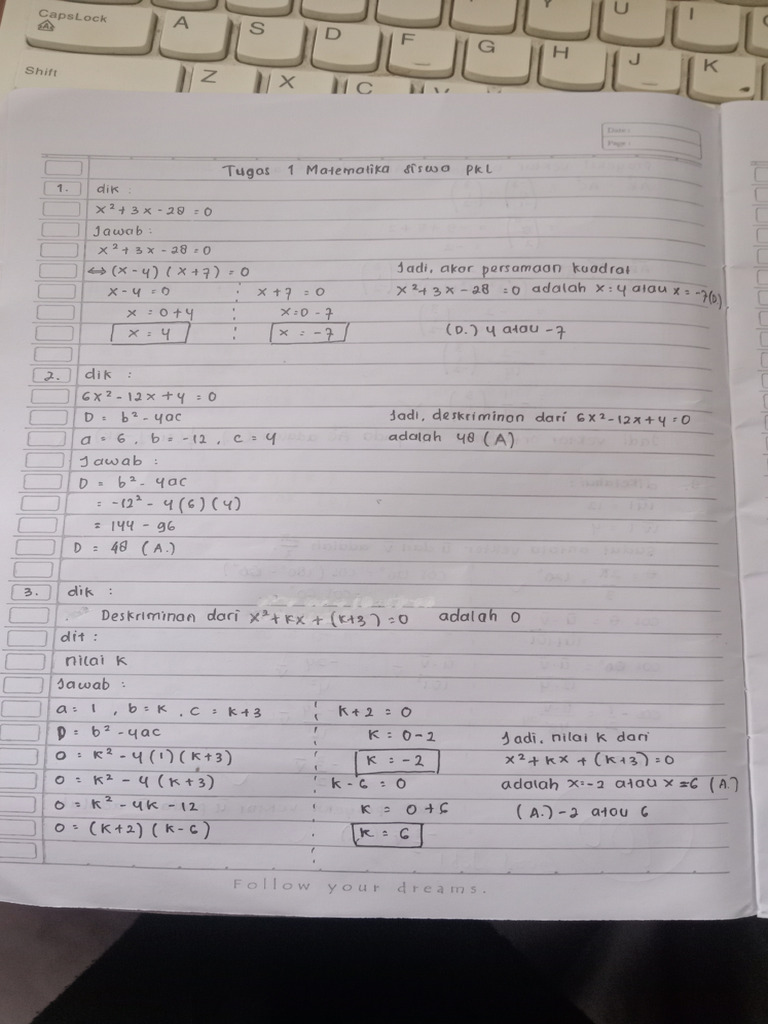 CapsLock A S D F G H J K
Y U I
Shift Z X C V
Date :
Page :
Tugas 1 Matematika siswa PKL
1. dik :
x² + 3x - 28 = 0
Jawab :
x² + 3x - 28 = 0
⇔ (x - 4) (x + 7) = 0 Jadi, akar persamaan kuadrat
x - 4 = 0 x + 7 = 0 x² + 3x - 28 = 0 adalah x = 4 atau x = -7 (D)
x = 0 + 4 x = 0 - 7
x = 4 x = -7 (D.) 4 atau -7
2. dik :
6x² - 12x + 4 = 0
D = b² - 4ac Jadi, deskriminan dari 6x² - 12x + 4 = 0
a = 6, b = -12, c = 4 adalah 48 (A)
Jawab :
D = b² - 4ac
= -12² - 4 (6) (4)
= 144 - 96
D = 48 (A.)
3. dik :
Deskriminan dari x² + kx + (k+3) = 0 adalah 0
dit :
nilai k
Jawab :
a = 1, b = k, c = k+3 k + 2 = 0
D = b² - 4ac k = 0 - 2 Jadi, nilai k dari
0 = k² - 4 (1) (k+3) k = -2 x² + kx + (k+3) = 0
0 = k² - 4 (k+3) k - 6 = 0 adalah x = -2 atau x = 6 (A.)
0 = k² - 4k - 12 k = 0 + 6 (A.) -2 atau 6
0 = (k+2) (k-6) k = 6
Follow your dreams.